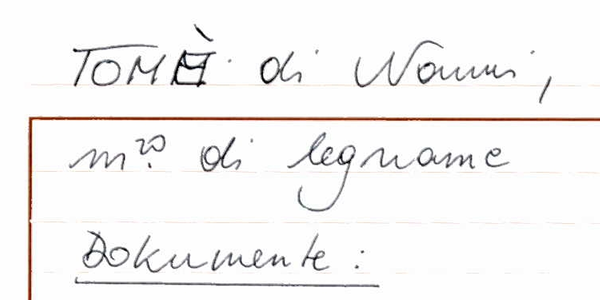 TOMÈ di Nanni,
m.ro di legname
Dokumente: